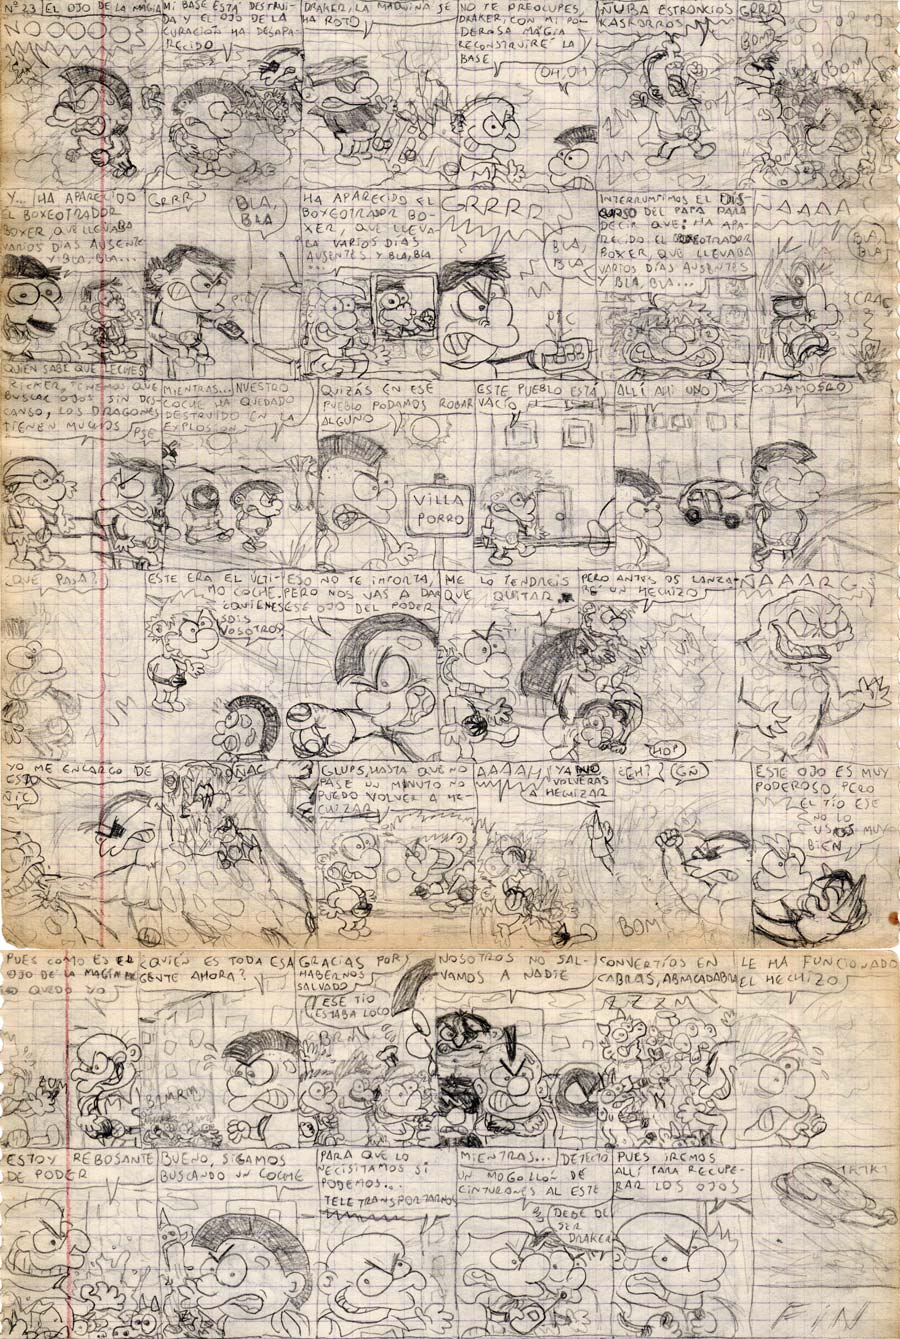 Nº 23
EL OJO DE LA MAGIA
NOOOOOO
MI BASE ESTÁ DESTRUI-
DA Y EL OJO DE LA
CURACIÓN HA DESAPA-
RECIDO
DRAKER, LA MAQUINA SE
HA ROTO
NO TE PREOCUPES,
DRAKER; CON MI PO-
DEROSA MAGIA
RECONSTRUIRÉ LA
BASE
OH, OH
ÑUBA ESTRONCIOS
KASKORROS
GRRR
BOM
BOOM
Y... HA APARECIDO
EL BOXEOTRADOR
BOXER, QUE LLEVABA
VARIOS DIAS AUSENTE
Y BLA, BLA...
GRRR
BLA,
BLA
HA APARECIDO EL
BOXEOTRADOR BO-
XER, QUE LLEVA-
BA VARIOS DIAS
AUSENTES Y BLA, BLA
...
GRRRR
BLA,
BLA
PIC
INTERRUMPIMOS EL DIS-
CURSO DEL PAPA PARA
DECIR QUE: HA APA-
RECIDO EL BOXEOTRADOR
BOXER, QUE LLEVABA
VARIOS DÍAS AUSENTES
Y BLA, BLA...
ÑAAAA
BLA,
BLA
CRAC
QUIEN SABE QUE LECHES
RICKER, TENEMOS QUE
BUSCAR OJOS SIN DES-
CANSO, LOS DRAGONES
TIENEN MUCHOS
PSE
MIENTRAS... NUESTRO
COCHE HA QUEDADO
DESTRUIDO EN LA
EXPLOSION
QUIZÁS EN ESE
PUEBLO PODAMOS ROBAR
ALGUNO
VILLA
PORRO
ESTE PUEBLO ESTÁ
VACÍO
ALLÍ AHÍ UNO
COJAMOSLO
¿QUE PASA?
ESTE ERA EL ÚLTI-
MO COCHE.
¿QUIENES
SOIS
VOSOTROS?
ESO NO TE IMPORTA,
PERO NOS VAS A DAR
ESE OJO DEL PODER
ME LO TENDREIS
QUE QUITAR
PERO ANTES OS LANZA-
RÉ UN HECHIZO
HOP
ÑAAARG
YO ME ENCARGO DE
ESTO
ÑIC
ÑAC
GLUPS, HASTA QUE NO
PASE UN MINUTO NO
PUEDO VOLVER A HE-
CHIZAR
AAAAH
YA NO
VOLVERAS
A HECHIZAR
¿EH?
GÑ
BOM
ESTE OJO ES MUY
PODEROSO, PERO
EL TÍO ESE
NO LO
USA MUY
BIEN
PUES COMO ES EL
OJO DE LA MAGIA ME
LO QUEDO YO
ZUM
¿QUIÉN ES TODA ESA
GENTE AHORA?
BRMRM
GRACIAS POR
HABERNOS
SALVADO
ESE TIO
ESTABA LOCO
NOSOTROS NO SAL-
VAMOS A NADIE
CONVERTÍOS EN
CABRAS, ABRACADABRA
ZZZM
LE HA FUNCIONADO
EL HECHIZO
ESTOY REBOSANTE
DE PODER
BUENO, SIGAMOS
BUSCANDO UN COCHE
PARA QUE LO
NECISITAMOS SI
PODEMOS...
TELETRANSPORTARNOS
MIENTRAS...
DETECTO
UN MOGOLLÓN DE
CINTURONES AL ESTE
DEBE DE
SER
DRAKER
PUES IREMOS
ALLÍ PARA RECUPE-
RAR LOS OJOS
FIN